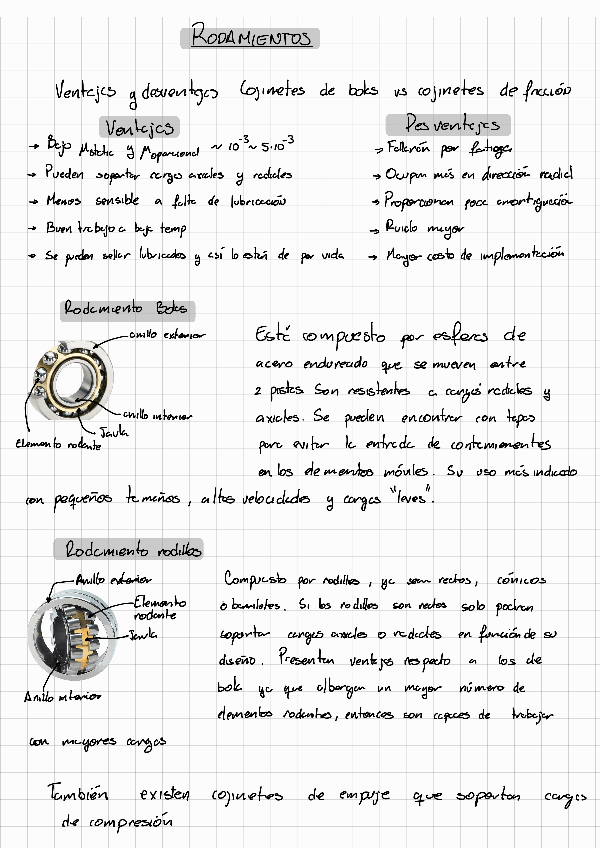 RODAMIENTOS
Ventajas y desventajas Cojinetes de bolas vs cojinetes de fricción
Ventajas
→ Bajo μestatic y μoperacional ~ 10⁻³ ~ 5·10⁻³
→ Pueden soportar cargas axiales y radiales
→ Menos sensible a falta de lubricación
→ Buen trabajo a baja temp
→ Se pueden sellar lubricados y así lo están de por vida
Desventajas
→ Fallarán por fatiga
→ Ocupan más en dirección radial
→ Proporcionan poca amortiguación
→ Ruido mayor
→ Mayor costo de implementación
Rodamiento Bolas
anillo exterior
anillo interior
Jaula
Elemento rodante
Está compuesto por esferas de
acero endurecido que se mueven entre
2 pistas. Son resistentes a cargas radiales y
axiales. Se pueden encontrar con tapas
para evitar la entrada de contaminantes
en los elementos móviles. Su uso más indicado
con pequeños tamaños, altas velocidades y cargas "leves".
Rodamiento rodillos
Anillo exterior
Elemento
rodante
Jaula
Anillo interior
Compuesto por rodillos, ya sean rectos, cónicos
o barriletes. Si los rodillos son rectos solo podran
soportar cargas axiales o radiales en función de su
diseño. Presentan ventajas respecto a los de
bola ya que albergan un mayor número de
elementos rodantes, entonces son capaces de trabajar
con mayores cargas
También existen cojinetes de empuje que soportan cargas
de compresión